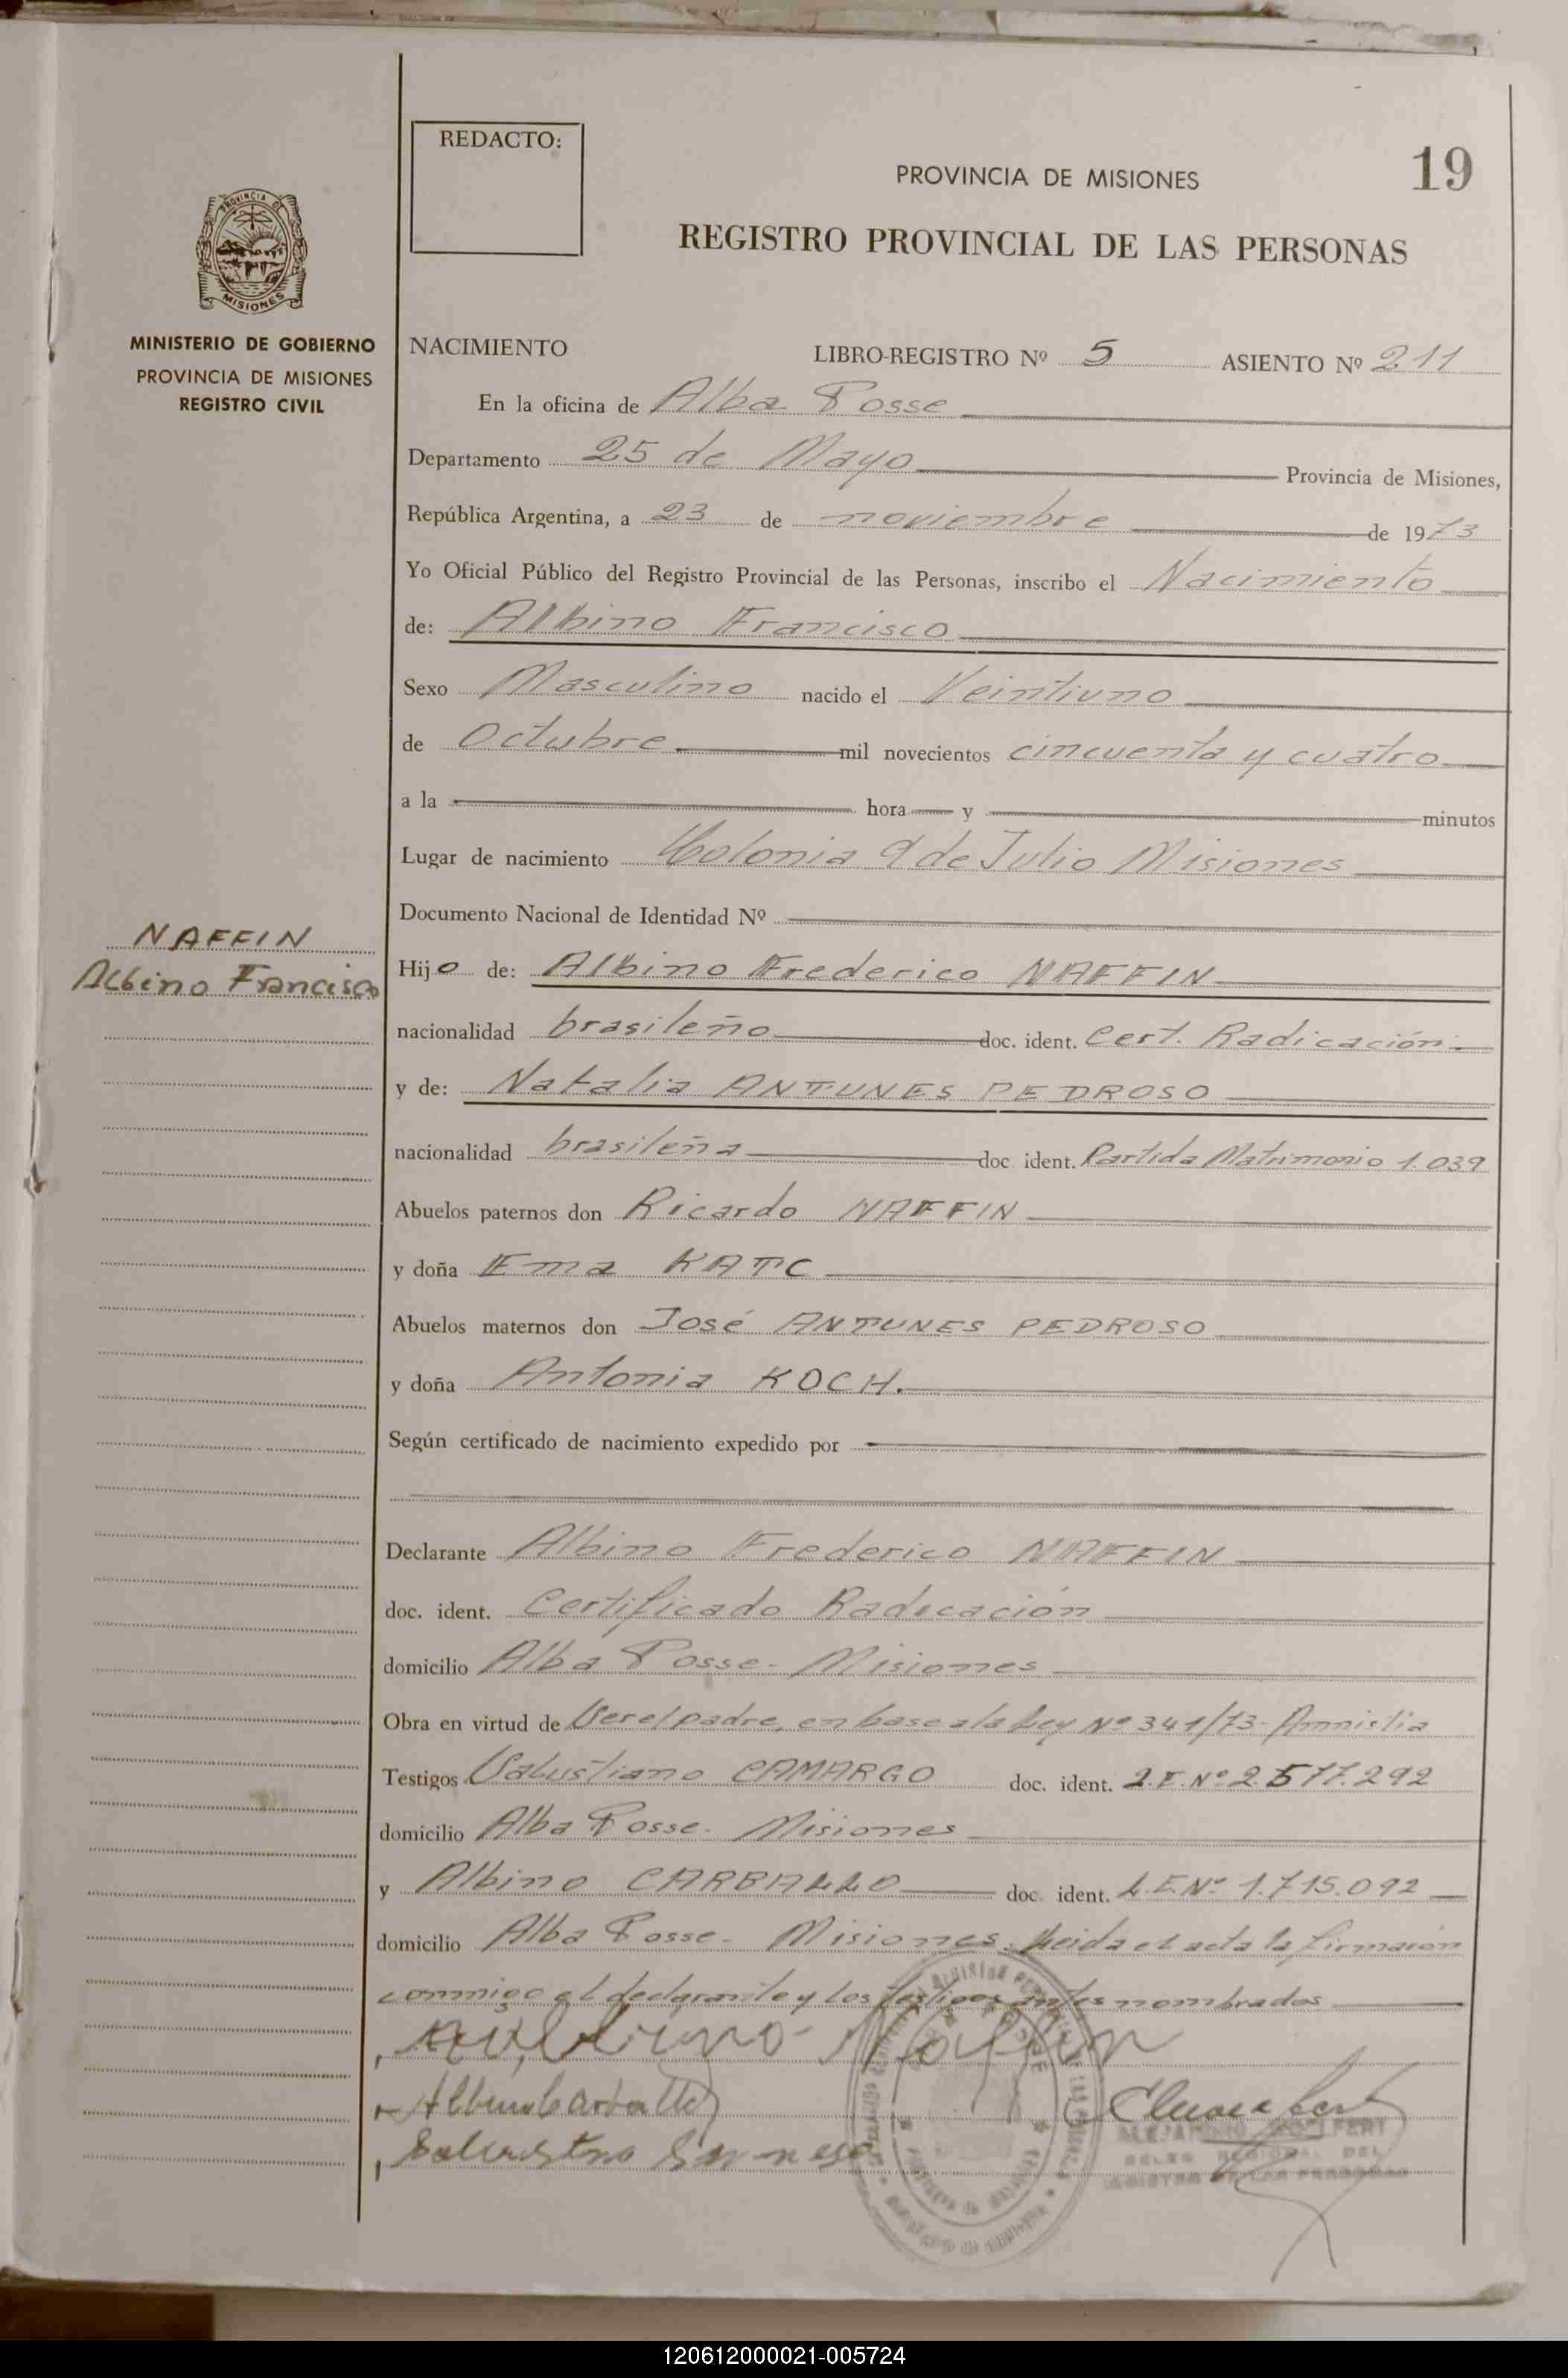 REDACTO:
PROVINCIA DE MISIONES
19
REGISTRO PROVINCIAL DE LAS PERSONAS
PROVINCIA DE
MISIONES
MINISTERIO DE GOBIERNO
PROVINCIA DE MISIONES
REGISTRO CIVIL
NACIMIENTO LIBRO-REGISTRO Nº 5 ASIENTO Nº 211
En la oficina de Alba Posse
Departamento 25 de Mayo Provincia de Misiones,
República Argentina, a 23 de noviembre de 1973
Yo Oficial Público del Registro Provincial de las Personas, inscribo el Nacimiento
de: Albino Francisco
Sexo Masculino nacido el Veintiuno
de Octubre mil novecientos cincuenta y cuatro
a la hora y minutos
Lugar de nacimiento Colonia 9 de Julio Misiones
Documento Nacional de Identidad Nº
NAFFIN
Albino Francisco
Hijo de: Albino Frederico NAFFIN
nacionalidad brasileño doc. ident. Cert. Radicación.
y de: Natalia ANTUNES PEDROSO
nacionalidad brasileña doc ident. Partida Matrimonio 1.039
Abuelos paternos don Ricardo NAFFIN
y doña Ema KATC
Abuelos maternos don José ANTUNES PEDROSO
y doña Antonia KOCH.
Según certificado de nacimiento expedido por
Declarante Albino Frederico NAFFIN
doc. ident. Certificado Radicación
domicilio Alba Posse- Misiones
Obra en virtud de Ser el padre, en base a la Ley Nº 341/73- Amnistia
Testigos Salustiano CAMARGO doc. ident. L.E. Nº 2.577.292
domicilio Alba Posse- Misiones
y Albino CARBALLO doc. ident. L.E Nº 1.715.092
domicilio Alba Posse- Misiones. Leida el acta la firmaron
conmigo el declarante y los testigos antes nombrados
Naffin
120612000021-005724